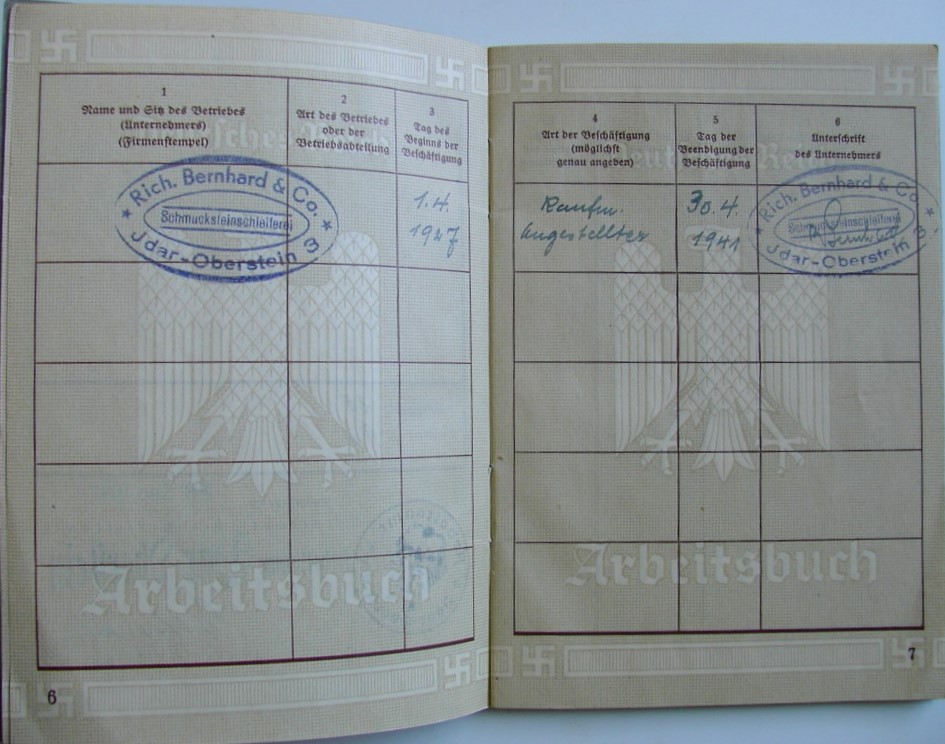 1
Name und Sitz des Betriebes
(Unternehmers)
(Firmenstempel)
2
Art des Betriebes
oder der
Betriebsabteilung
3
Tag des
Beginns der
Beschäftigung
Rich. Bernhard & Co.
Schmucksteinschleiferei
Jdar-Oberstein 3
1.4.
1927
Arbeitsbuch
6
4
Art der Beschäftigung
(möglichst
genau angeben)
5
Tag der
Beendigung der
Beschäftigung
6
Unterschrift
des Unternehmers
Kaufm.
Angestellter
30.4.
1941
Rich. Bernhard & Co.
Schmucksteinschleiferei
Jdar-Oberstein 3
Arbeitsbuch
7